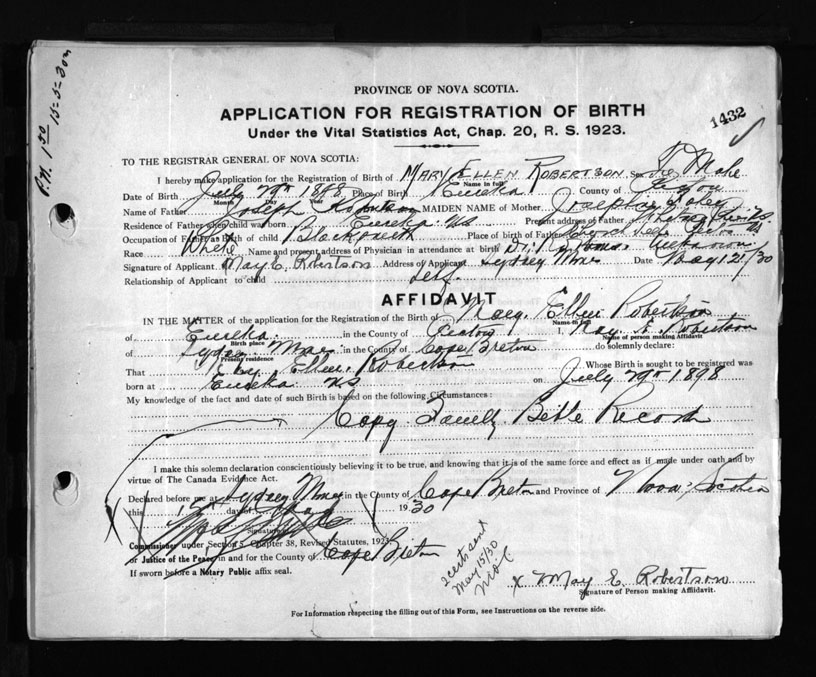 P.N. 1 50 15-5-30
PROVINCE OF NOVA SCOTIA.
APPLICATION FOR REGISTRATION OF BIRTH
Under the Vital Statistics Act, Chap. 20, R. S. 1923.
1432
TO THE REGISTRAR GENERAL OF NOVA SCOTIA:
I hereby make application for the Registration of Birth of MARY ELLEN ROBERTSON Sex
Name in full
Date of Birth July 29th 1898 Place of Birth Eureka County of Pictou
Month Day Year
Name of Father Joseph Robertson MAIDEN NAME of Mother Josephine Foley
Residence of Father when child was born Eureka NS Present address of Father
Occupation of Father at Birth of child Place of birth of Father
Race White Name and present address of Physician in attendance at birth Unknown
Signature of Applicant May E. Robertson Address of Applicant Sydney Mines Date May 12/30
Relationship of Applicant to child Self
AFFIDAVIT
IN THE MATTER of the application for the Registration of the Birth of Mary Ellen Robertson
Name in full
of Eureka in the County of Pictou I, May E. Robertson
Birth place Name of person making Affidavit
of Sydney Mines in the County of Cape Breton do solemnly declare:
Present residence
That Mary Ellen Robertson Whose Birth is sought to be registered was
born at Eureka NS on July 29th 1898
My knowledge of the fact and date of such Birth is based on the following Circumstances:
Copy Family Bible Record
I make this solemn declaration conscientiously believing it to be true, and knowing that it is of the same force and effect as if made under oath and by
virtue of The Canada Evidence Act.
Declared before me at Sydney Mines in the County of Cape Breton and Province of Nova Scotia
this day of May 1930
Signature
Commissioner under Section 5, Chapter 38, Revised Statutes, 1923
or Justice of the Peace in and for the County of Cape Breton
If sworn before a Notary Public affix seal.
2 certs sent
May 15/30
x May E. Robertson
Signature of Person making Affidavit.
For Information respecting the filling out of this Form, see Instructions on the reverse side.